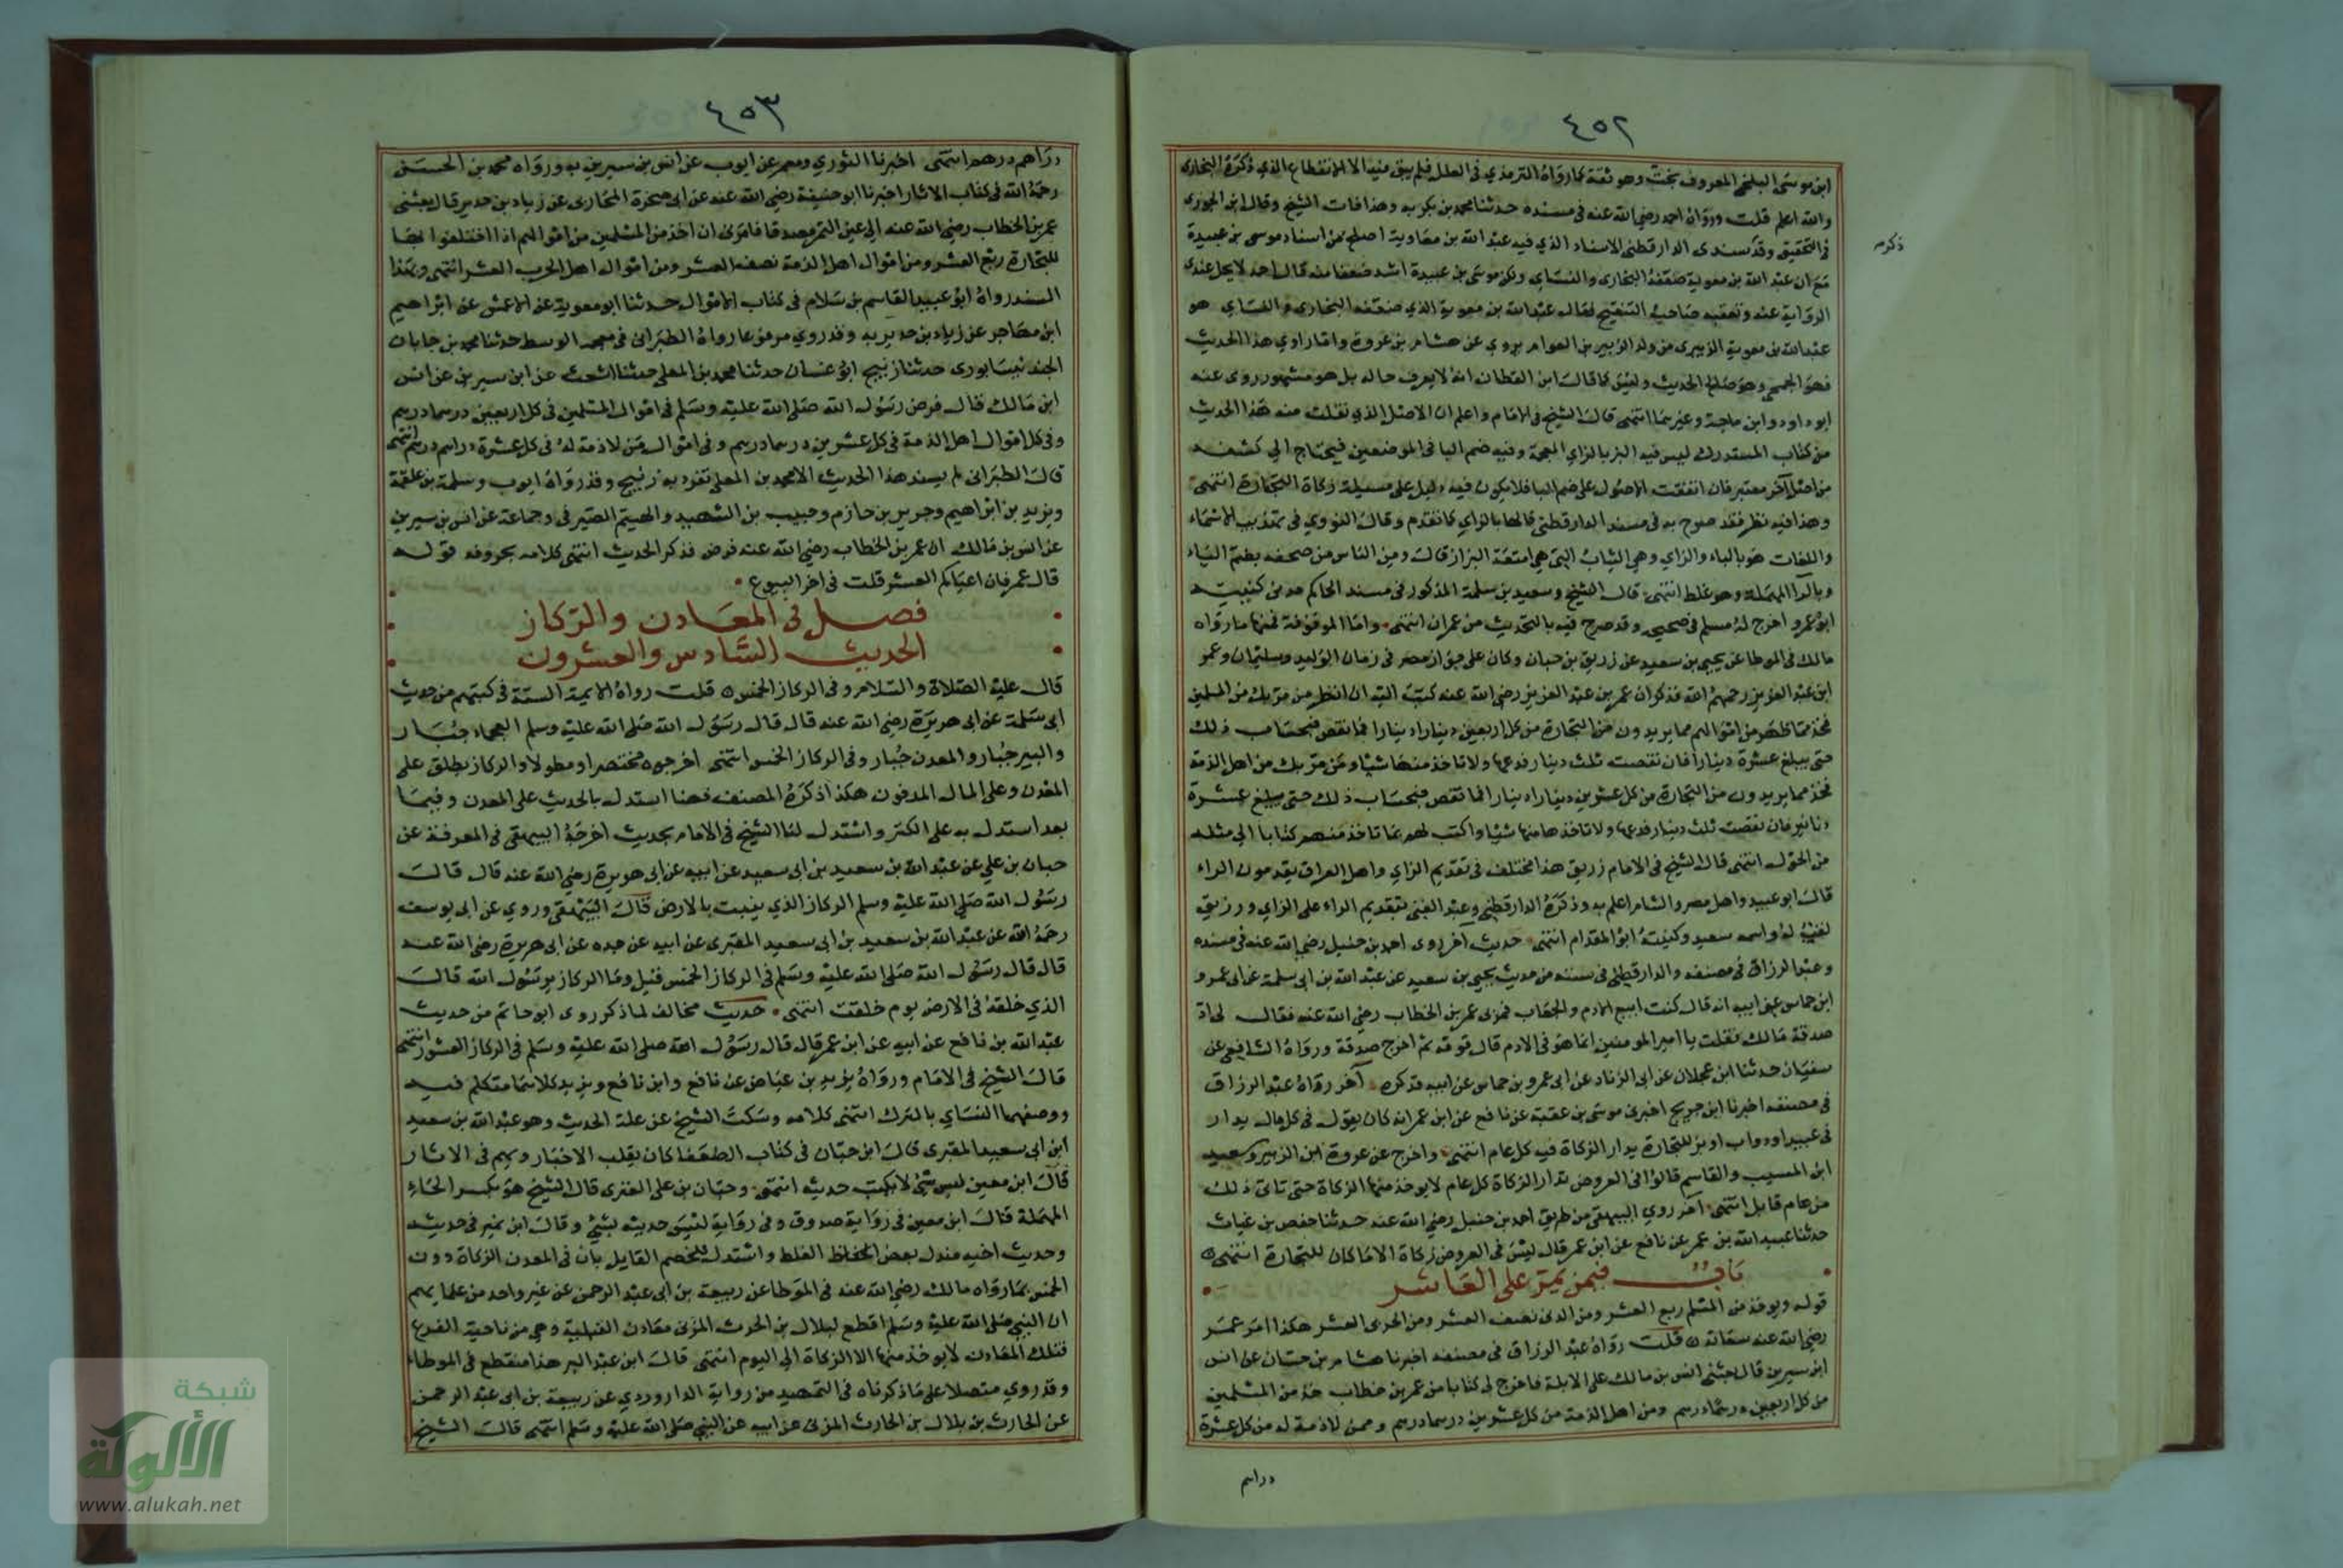 ٤٥٢
ابن موسى البلخي المعروف بخت وهو ثقة كما رواه الترمذي في العلل فلم يبق فيه الا الانقطاع الذي ذكره البخاري
والله اعلم قلت ورواه احمد رضي الله عنه في مسنده حدثنا محمد بن بكر به وهذا فات الشيخ وقال ابن الجوزي
في التحقيق وقد سندى الدارقطني الاسناد الذي فيه عبد الله بن معاوية اصلح من اسناد موسى بن عبيدة
ذكره
مع ان عبد الله بن معوية ضعفه البخاري والنساي ولكن موسى بن عبيدة اشد ضعفا منه قال احمد لا يحل عندي
الرواية عنه وتعقبه صاحب التنقيح فقال عبد الله بن معوية الذي ضعفه البخاري والنساي هو
عبد الله بن معوية الزبيري من ولد الزبير بن العوام يروي عن هشام بن عروة واما راوي هذا الحديث
فهو الجمحي وهو صالح الحديث وليس كما قال ابن القطان انه لا يعرف حاله بل هو مشهور روى عنه
ابو داود وابن ماجة وغيرهما انتهى قال الشيخ في الامام واعلم ان الاصل الذي نقلت منه هذا الحديث
من كتاب المستدرك ليس فيه البز بالزاي المعجمة وفيه ضم البا في الموضعين فيحتاج الى كشفه
من اصل آخر معتبر فان اتفقت الاصول على ضم البا فلا يكون فيه دليل على مسيلة زكاة التجارة انتهى
وهذا فيه نظر فقد صرح به في مسند الدارقطني قالها بالزاي كما تقدم وقال النووي في تهذيب الاسماء
واللغات هو بالباء والزاي وهي الثياب التي هي امتعة البزاز قال ومن الناس من صحفه بضم الباء
وبالرا المهملة وهو غلط انتهى قال الشيخ وسعيد بن سلمة المذكور في مسند الحاكم هو من كنيته
ابو عمرو اخرج له مسلم في صحيحه وقد صرح فيه بالتحديث من عمران انتهى واما الموقوفة فمنها ما رواه
مالك في الموطا عن يحيى بن سعيد عن زريق بن حبان وكان على جواز مصر في زمان الوليد وسليمان وعمر
ابن عبد العزيز رحمهم الله فذكر ان عمر بن عبد العزيز رضي الله عنه كتب اليه ان انظر من مر بك من المسلمين
فخذ مما ظهر من اموالهم مما يريدون من التجارة من كل اربعين دينارا دينارا فما نقص فبحساب ذلك
حتى يبلغ عشرة دينارا فان نقصت ثلث دينار فدعها ولا تاخذ منها شيا ومن مر بك من اهل الذمة
فخذ مما يريدون من التجارة من كل عشرين دينارا دينارا فما نقص فبحساب ذلك حتى يبلغ عشرة
دنانير فان نقصت ثلث دينار فدعها ولا تاخذها منها شيا واكتب لهم بما تاخذ منهم كتابا الى مثله
من الحول انتهى قال الشيخ في الامام زريق هذا مختلف في تقديم الزاي واهل العراق يقدمون الراء
قال ابو عبيد واهل مصر والشام اعلم به وذكره الدارقطني وعبد الغني بتقديم الراء على الزاي ورزيق
لقب له واسمه سعيد وكنيته ابو المقدام انتهى حديث آخر روى احمد بن حنبل رضي الله عنه في مسنده
وعبد الرزاق في مصنفه والدارقطني في سننه من حديث يحيى بن سعيد عن عبد الله بن ابي سلمة عن ابي عمرو
ابن حماس عن ابيه انه قال كنت ابيع الادم والجعاب فمر بي عمر بن الخطاب رضي الله عنه فقال لي اد
صدقة مالك فقلت يا امير المومنين انما هو في الادم قال قومه ثم اخرج صدقة ورواه الشافعي عن
سفيان حدثنا ابن عجلان عن ابي الزناد عن ابي عمرو بن حماس عن ابيه فذكره آخر رواه عبد الرزاق
في مصنفه اخبرنا ابن جريج اخبرني موسى بن عقبة عن نافع عن ابن عمر انه كان يقول في كل مال يدار
في عبيد او دواب او بز للتجارة يدار الزكاة فيه كل عام انتهى واخرج عن عروة ابن الزبير وسعيد
ابن المسيب والقاسم قالوا في العروض تدار الزكاة كل عام لا يوخذ منها الزكاة حتى تاتي ذلك
من عام قابل انتهى آخر روي البيهقي من طريق احمد بن حنبل رضي الله عنه حدثنا حفص بن غياث
حدثنا عبيد الله بن عمر عن نافع عن ابن عمر قال ليس في العروض زكاة الا ما كان للتجارة انتهى
باب فيمن يمر على العاشر
قوله ويوخذ من المسلم ربع العشر ومن الذمي نصف العشر ومن الحربي العشر هكذا امر عمر
رضي الله عنه سعاته قلت رواه عبد الرزاق في مصنفه اخبرنا هشام بن حسان عن انس
ابن سيرين قال بعثني انس بن مالك على الابلة فاخرج لي كتابا من عمر بن خطاب خذ من المسلمين
من كل اربعين درهما درهم ومن اهل الذمة من كل عشرين درهما درهم وممن لا ذمة له من كل عشرة
دراهم
٤٥٣
دراهم درهم انتهى اخبرنا الثوري ومعمر عن ايوب عن انس بن سيرين به ورواه محمد بن الحسن
رحمه الله في كتاب الاثار اخبرنا ابو حنيفة رضي الله عنه عن ابي صخرة المحاربي عن زياد بن حدير قال بعثني
عمر بن الخطاب رضي الله عنه الى عين التمر مصدقا فامرني ان اخذ من المسلمين من اموالهم اذا اختلفوا بها
للتجارة ربع العشر ومن اموال اهل الذمة نصف العشر ومن اموال اهل الحرب العشر انتهى وبهذا
السند رواه ابو عبيد القاسم بن سلام في كتاب الاموال حدثنا ابو معوية عن الاعمش عن ابراهيم
ابن مهاجر عن زياد بن حدير به وقد روي مرفوعا رواه الطبراني في معجمه الوسط حدثنا محمد بن جابان
الجند نيسابوري حدثنا زنيج ابو غسان حدثنا محمد بن المعلى حدثنا اشعث عن ابن سيرين عن انس
ابن مالك قال فرض رسول الله صلى الله عليه وسلم في اموال المسلمين في كل اربعين درهما درهم
وفي كل اموال اهل الذمة في كل عشرين درهما درهم وفي اموال من لا ذمة له في كل عشرة دراهم درهم انتهى
قال الطبراني لم يسند هذا الحديث الا محمد بن المعلى تفرد به زنيج وقد رواه ايوب وسلمة بن علقمة
ويزيد بن ابراهيم وجرير بن حازم وحبيب بن الشهيد والهيثم الصيرفي وجماعة عن انس بن سيرين
عن انس بن مالك ان عمر بن الخطاب رضي الله عنه فرض فذكر الحديث انتهى كلامه بحروفه قوله
قال عمر فان اعياكم العشر قلت في اخر البيوع
فصل في المعادن والركاز
الحديث السادس والعشرون
قال عليه الصلاة والسلام وفي الركاز الخمس قلت رواه الايمة الستة في كتبهم من حديث
ابي سلمة عن ابي هريرة رضي الله عنه قال قال رسول الله صلى الله عليه وسلم العجماء جبار
والبير جبار والمعدن جبار وفي الركاز الخمس انتهى اخرجوه مختصرا ومطولا والركاز يطلق على
المعدن وعلى المال المدفون هكذا ذكره المصنف فهنا استدل بالحديث على المعدن وفيما
بعد استدل به على الكنز واستدل لنا الشيخ في الامام بحديث اخرجه البيهقي في المعرفة عن
حبان بن علي عن عبد الله بن سعيد بن ابي سعيد عن ابيه عن ابي هريرة رضي الله عنه قال قال
رسول الله صلى الله عليه وسلم الركاز الذي ينبت بالارض قال البيهقي وروي عن ابي يوسف
رحمه الله عن عبد الله بن سعيد بن ابي سعيد المقبري عن ابيه عن جده عن ابي هريرة رضي الله عنه
قال قال رسول الله صلى الله عليه وسلم في الركاز الخمس قيل وما الركاز يرسول الله قال
الذي خلقه في الارض يوم خلقت انتهى حديث مخالف لما ذكر روى ابو حاتم من حديث
عبد الله بن نافع عن ابيه عن ابن عمر قال قال رسول الله صلى الله عليه وسلم في الركاز العشور انتهى
قال الشيخ في الامام ورواه يزيد بن عياض عن نافع وابن نافع ويزيد كلاهما متكلم فيه
ووصفهما النساي بالترك انتهى كلامه وسكت الشيخ عن علة الحديث وهو عبد الله بن سعيد
ابن ابي سعيد المقبري قال ابن حبان في كتاب الضعفا كان يقلب الاخبار ويهم في الاثار
قال ابن معين ليس بشي لا يكتب حديثه انتهى وحبان بن علي العنزي قال الشيخ هو بكسر الحاء
المهملة قال ابن معين في رواية صدوق وفي رواية ليس حديثه بشي وقال ابن نمير في حديثه
وحديث اخيه مندل بعض الغلط واستدل للخصم القايل بان في المعدن الزكاة دون
الخمس بما رواه مالك رضي الله عنه في الموطا عن ربيعة بن ابي عبد الرحمن عن غير واحد من علمايهم
ان النبي صلى الله عليه وسلم اقطع لبلال بن الحرث المزني معادن القبلية وهي من ناحية الفرع
فتلك المعادن لا يوخذ منها الا الزكاة الى اليوم انتهى قال ابن عبد البر هذا منقطع في الموطاء
وقد روي متصلا على ما ذكرناه في التمهيد من رواية الداروردي عن ربيعة بن ابي عبد الرحمن
عن الحارث بن بلال بن الحارث المزني عن ابيه عن النبي صلى الله عليه وسلم انتهى قال الشيخ
شبكة
الألوكة
www.alukah.net